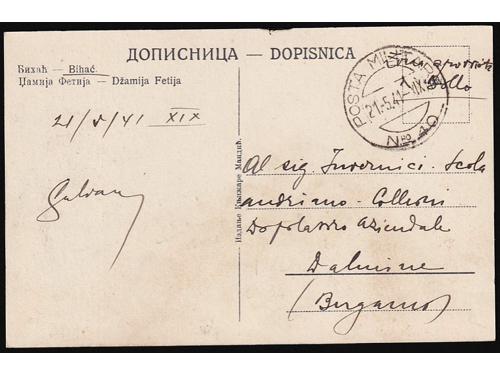 ДОПИСНИЦА — DOPISNICA
Бихаћ — Bihać.
Џамија Фетија — Džamija Fetija
21/5/41 XIX
POSTA MILITARE
21.5.41.XIX
Nro 40
Bollo
Издање Књижаре Мандић.
Al sig. Invernici Scola
andriano - Colleoni
Dopolavoro Aziendale
Dalmine
(Bergamo)